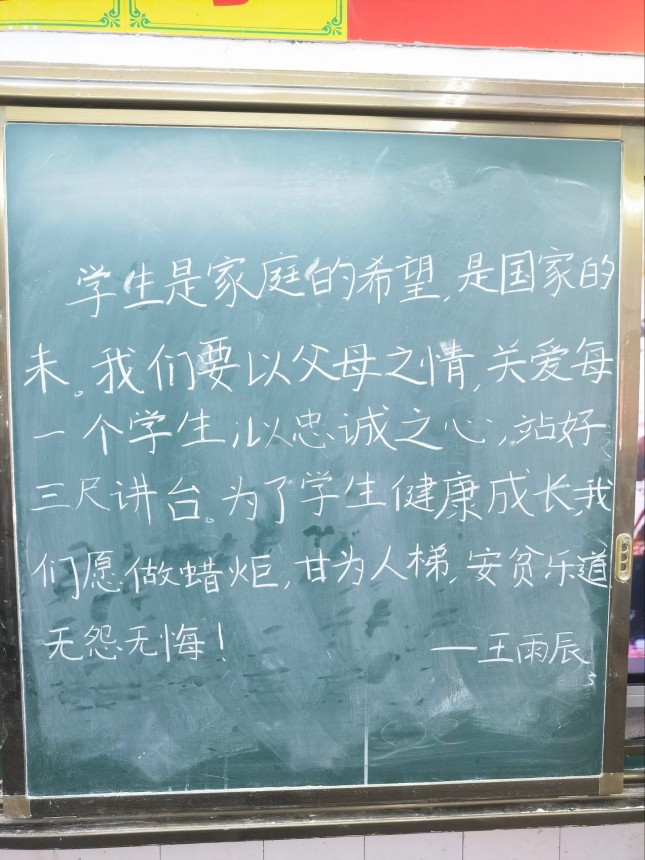 学生是家庭的希望,是国家的
未。我们要以父母之情,关爱每
一个学生;以忠诚之心,站好
三尺讲台。为了学生健康成长,我
们愿做蜡炬,甘为人梯,安贫乐道
无怨无悔!
——王雨辰